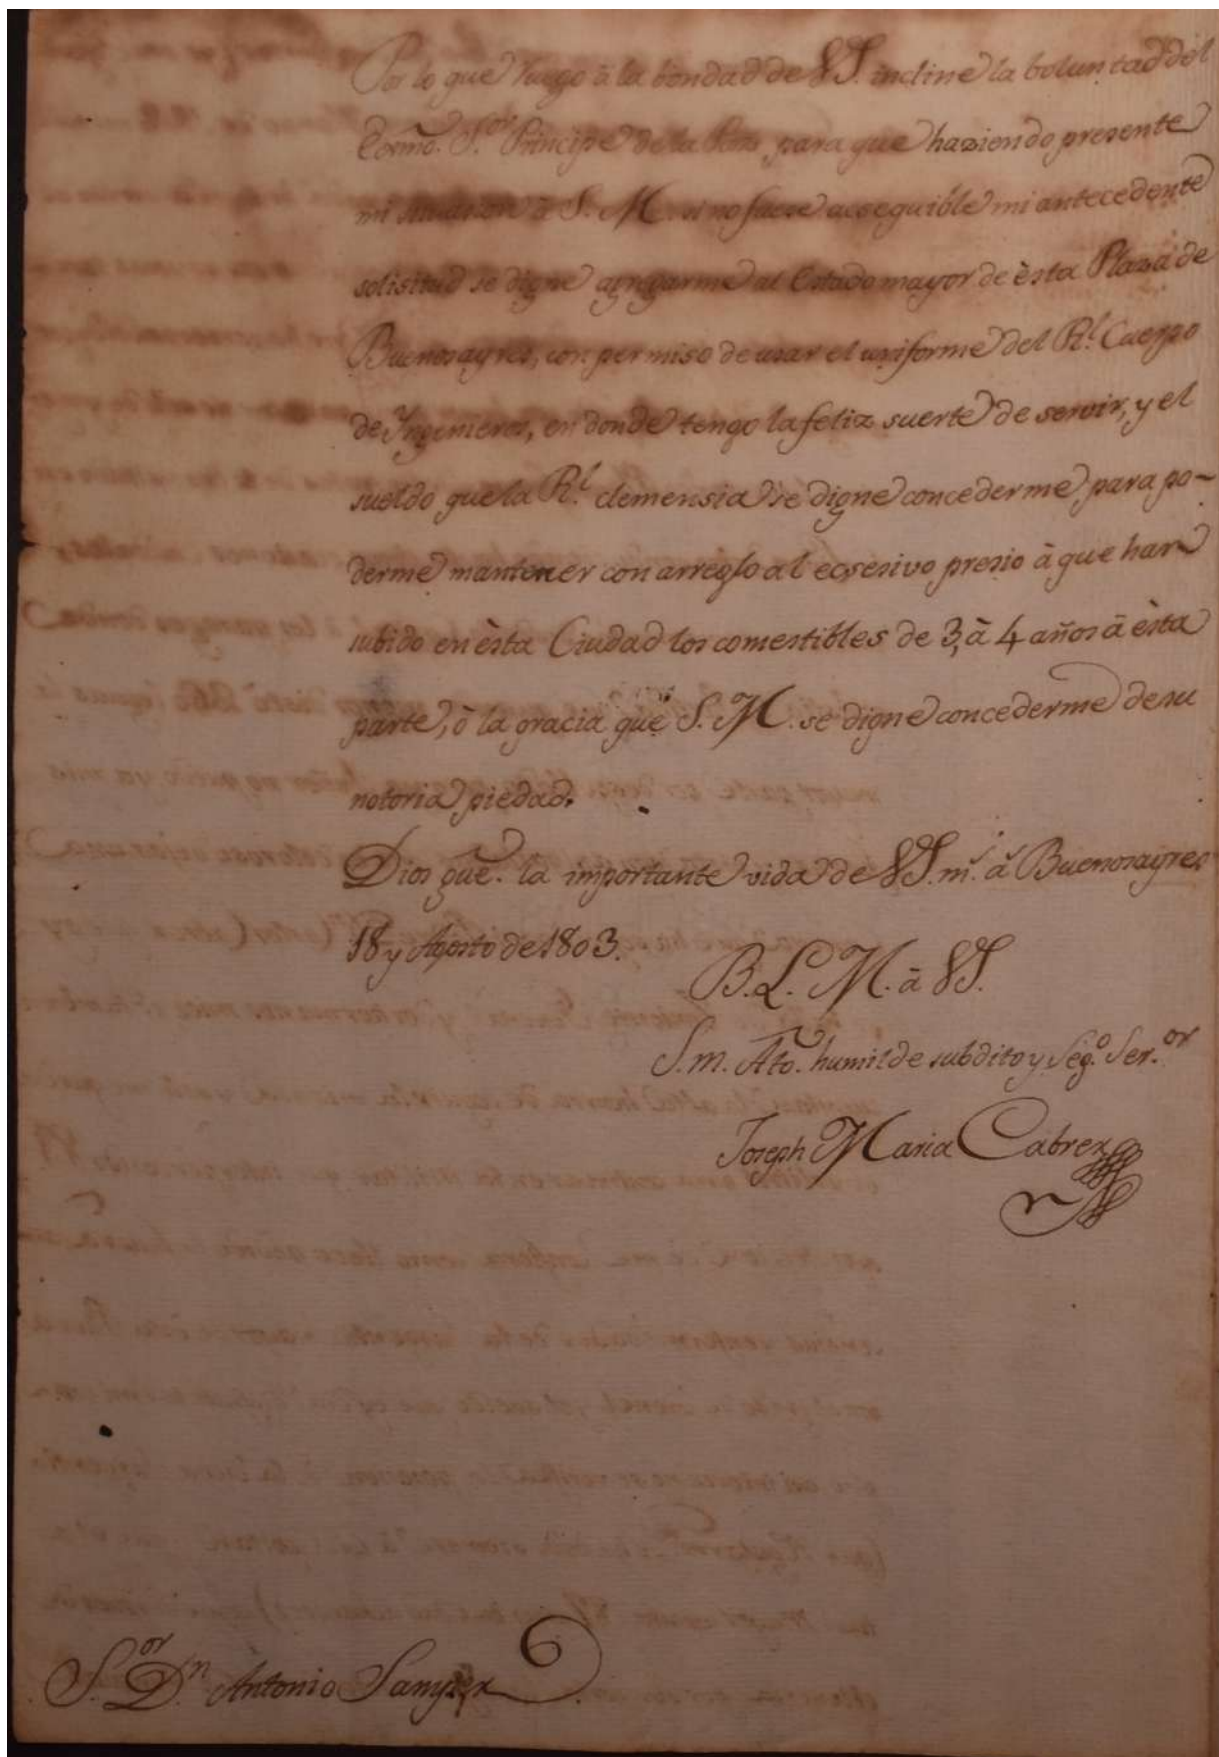 Por lo que ruego â la bondad de VS. incline la boluntad del
Exmô. S.or Principe de la Paz para que haziendo presente
mi situasion â S. M. si no fuese acseguible mi antecedente
solisitud se digne agregarme al Estado mayor de èsta Plaza de
Buenosayres, con permiso de usar el uniforme del Rl. Cuerpo
de Yngenieros, en donde tengo la feliz suerte de servir, y el
sueldo que la Rl. clemensia se digne concederme para po-
derme mantener con arreglo al ecsesivo presio â que han
subido en èsta Ciudad los comestibles de 3, â 4 años â èsta
parte, ô la gracia que S. M. se digne concederme de su
notoria piedad.
Dios gue. la importante vida de VS. ms. as. Buenosayres
18 y Agosto de 1803.
B. L. M. â VS.
S. m. Ato. humilde subdito y Seg.o Ser.or
Joseph Maria Cabrer
S.or D.n Antonio Samper